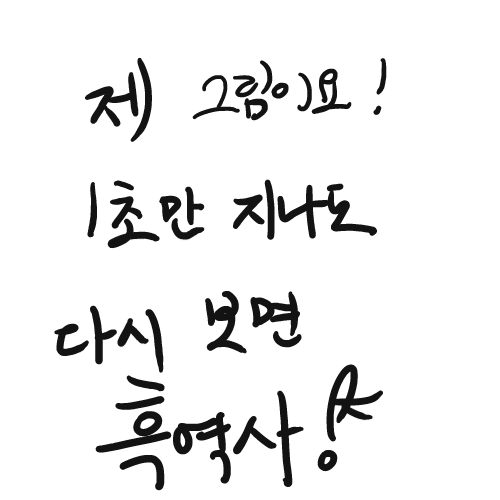 제 그림이요!
1초만 지나도
다시 보면
흑역사!